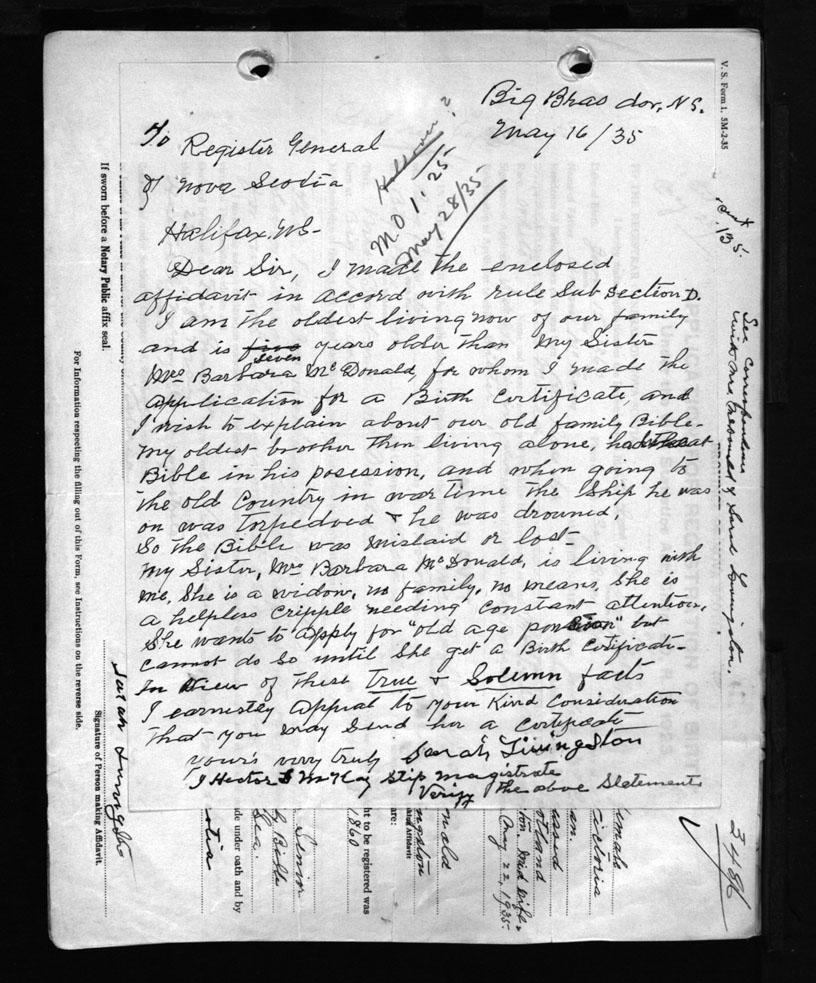 Big Bras dor, N.S.
May 16/35
To Register General
of Nova Scotia
Halifax. NS-
M.O 1.25
May 28/35
Dear Sir, I made the enclosed
affidavit in accord with rule Sub Section D.
I am the oldest living now of our family
and is five seven years older than My Sister
Mrs Barbara McDonald, for whom I made the
application for a Birth Certificate, and
I wish to explain about our old family Bible-
my oldest brother then living alone, had that
Bible in his posession, and when going to
the old Country in war time the Ship he was
on was torpedoed & he was drouned.
So the Bible was mislaid or lost-
My Sister, Mrs Barbara McDonald, is living with
me, She is a widow, no family, no means, She is
a helpless cripple needing constant attention,
She wants to apply for "old age pension" but
cannot do so until She get a Birth Certificate-
In View of these True & Solemn facts
I earnestly Appeal to your Kind Consideration
that you may Send her a Certificate
yours very truly Sarah Livingston
I Hector McKay Stip Magistrate
Verify the above Statements
V. S. Form 1. 5M-2-35
See correspondence
with Mrs. McDonald & Sarah Livingston.
3486
If sworn before a Notary Public affix seal.
For Information respecting the filling out of this Form, see Instructions on the reverse side.
Sarah Livingston
Signature of Person making Affidavit.
de under oath and by
ht to be registered was
1860
are:
May 22, 1935.